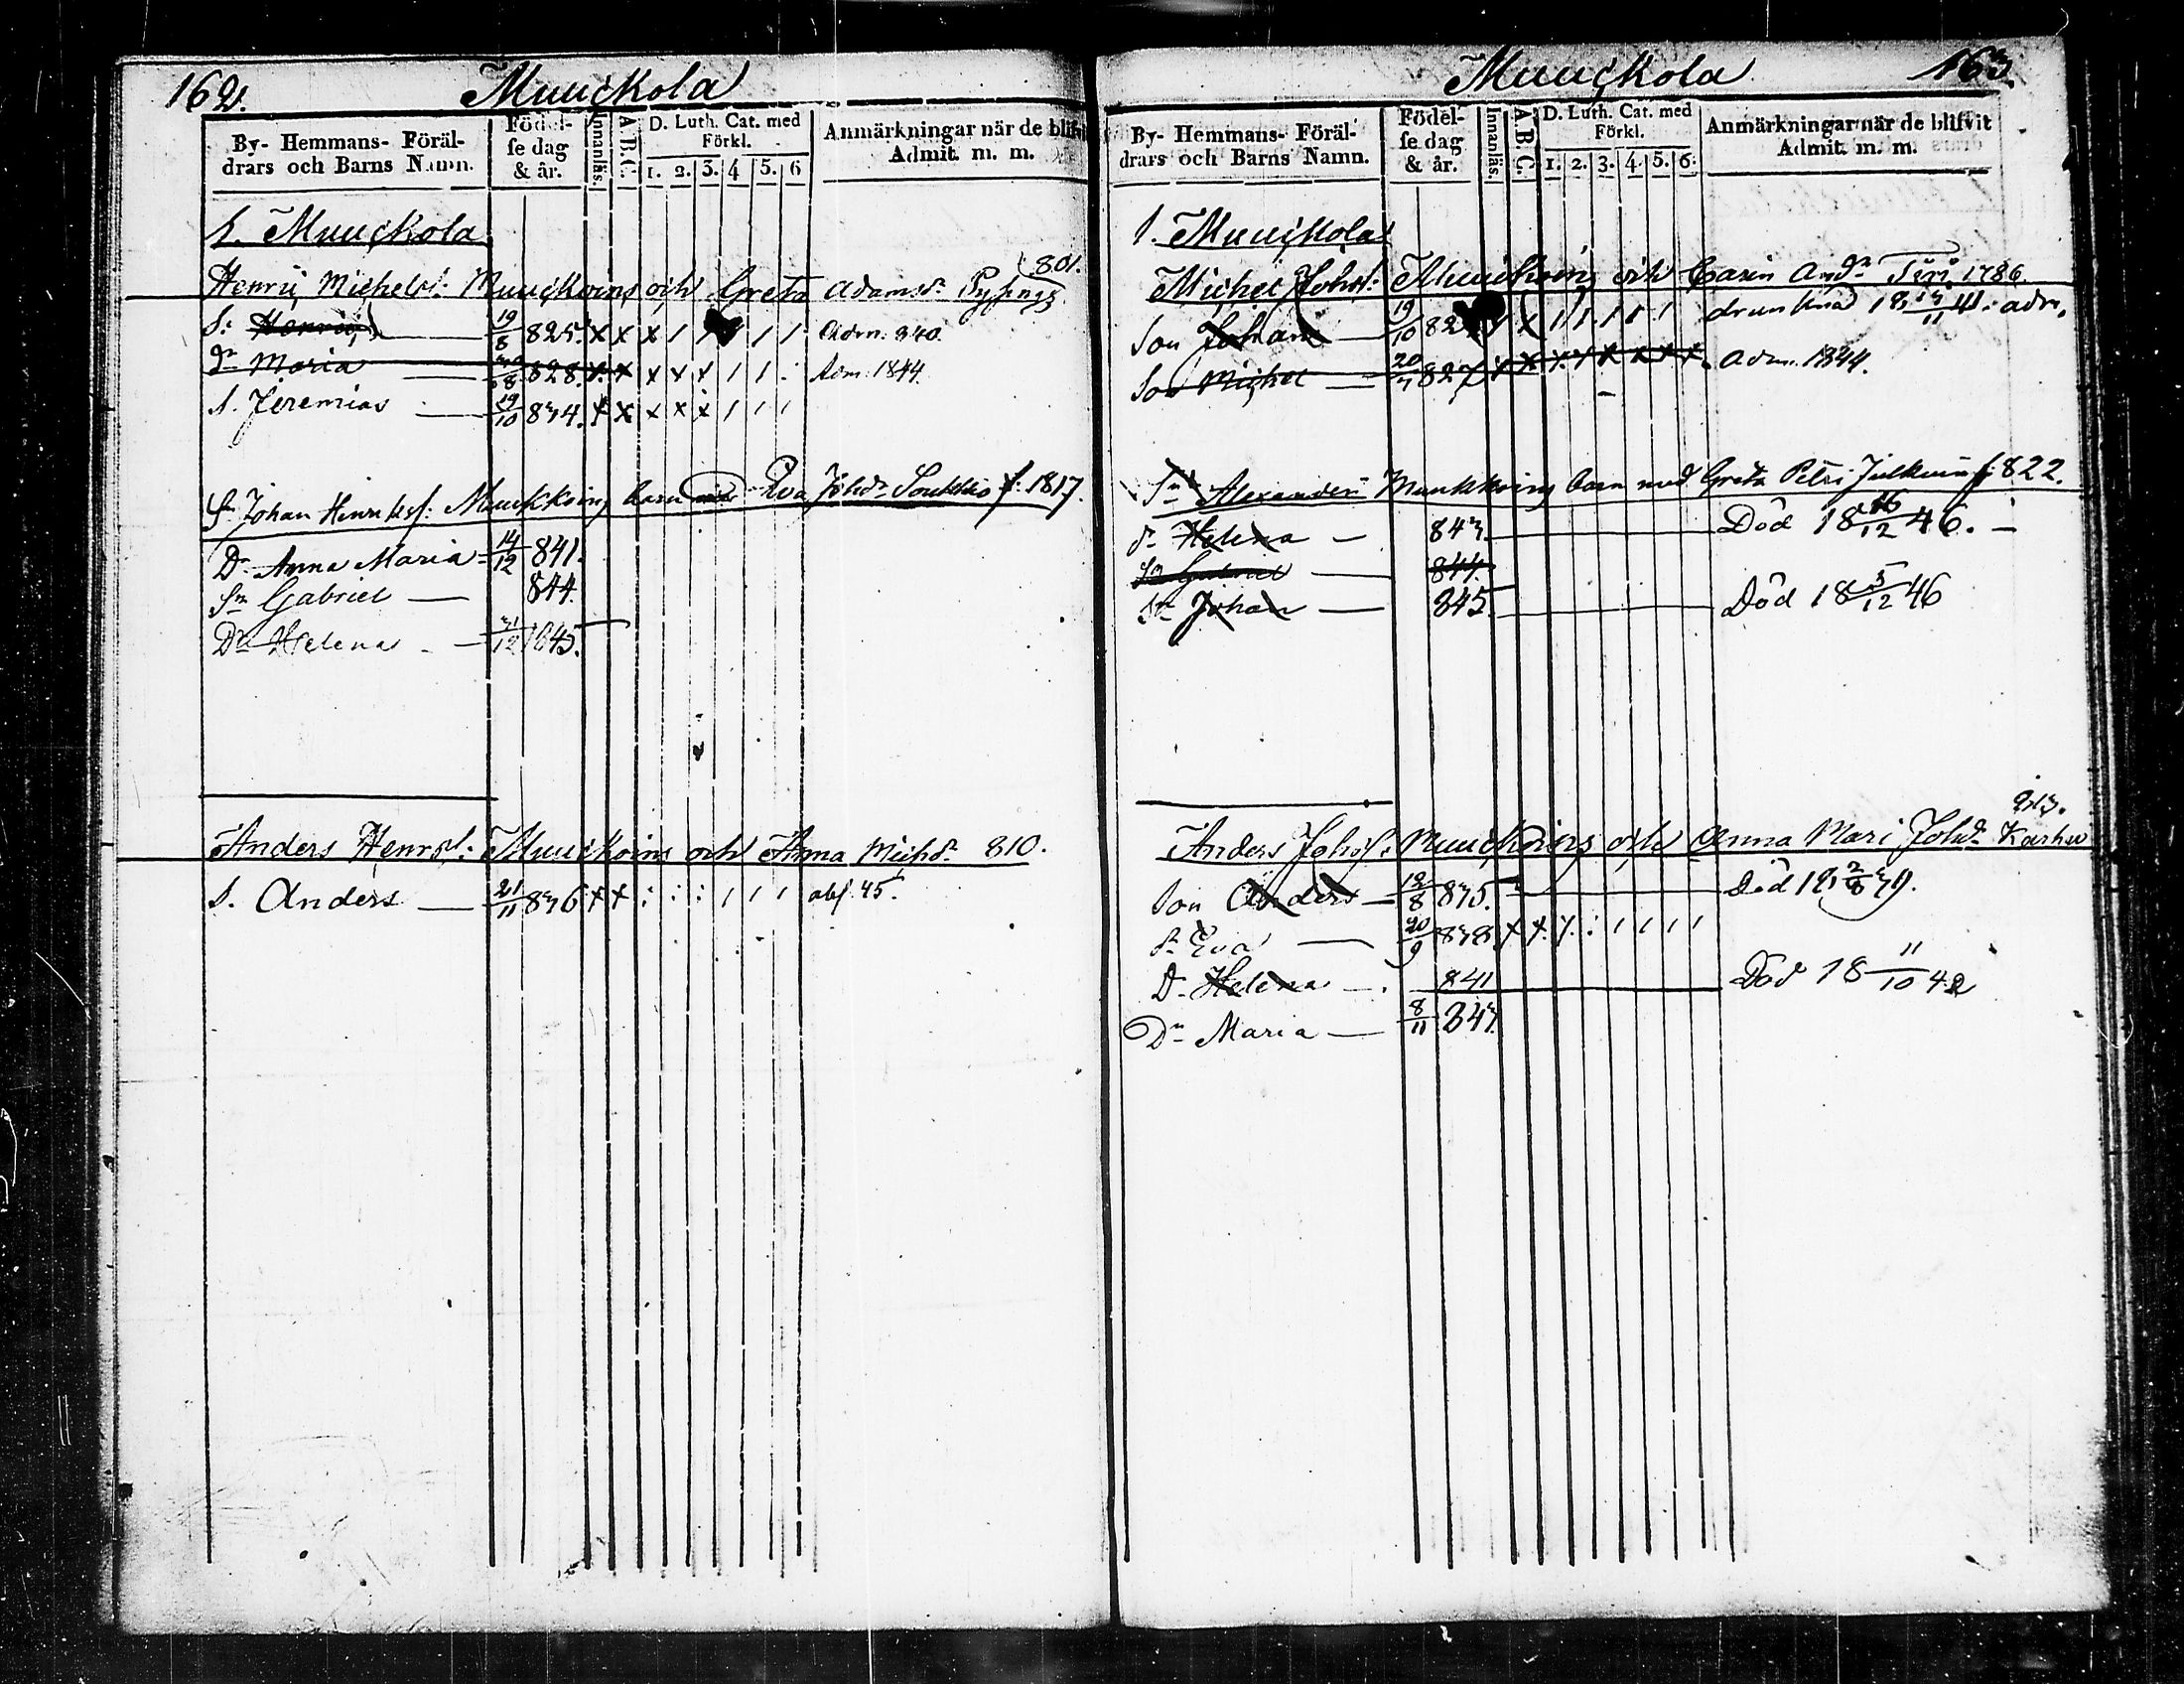 162. Muuckola
By- Hemmans- Föräl-
drars och Barns Namn.
Födel-
se dag
& år.
Innanläs.
A. B. C.
D. Luth. Cat. med
Förkl.
1. 2. 3. 4 5. 6
Anmärkningar när de blif
Admit. m. m.
1. Muuckola
801.
Henric Michels: Muuckoin och Greta Adamsdr
S: Henric 19/8 825. x x x 1 1 1 1 Adm. 840.
Dr Maria /8 828. x x x x x 1 1 Adm. 1844.
S. Jeremias 19/10 834. x x x x x 1 1 1
Sn Johan Henriks: Muukkoin barn med Eva Johdr Soukko f. 1817.
Dr Anna Maria 14/12 841.
Sn Gabriel 844.
Dr Helena 31/12 1845.
Anders Henrs: Muuckoin och Anna Michdr 810.
S. Anders 21/11 836 x x : : : 1 1 1 abs. 45.
Muuckola 163.
By- Hemmans- Föräl-
drars och Barns Namn.
Födel-
se dag
& år.
Innanläs.
A. B. C.
D. Luth. Cat. med
Förkl.
1. 2. 3. 4. 5. 6.
Anmärkningar när de blifvit
Admit. m. m.
1. Muuckola
Michel Johs: Muuckoin och Carin Andr 1786.
Son Johan 19/10 82 x 1 1 1 1 1 drunknad 18 /11 41: adm.
Son Michel 20/7 827 x x x x x x x x adm. 1844.
Sn Alexander Muukkoin barn med Greta Petri Julkuin f: 822.
dr Helena 843. Död 18 16/12 46.
Sn Gabriel 844.
Sn Johan 845. Död 18 5/12 46
813.
Anders Johs: Muuckoin och Anna Mari Johdr Karhu
Son Anders 12/8 835. Död 18 2/8 39.
dr Eva /9 838. x x x : 1 1 1 1
D. Helena 841 Död 18 11/10 42
Dr Maria 8/11 843.